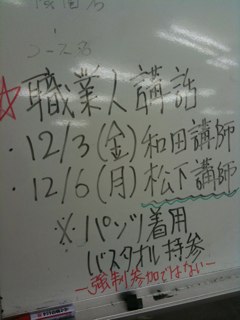 コース名
☆職業人講話
・12/3(金)和田講師
・12/6(月)松下講師
※パンツ着用
バスタオル持参
ー強制参加ではないー